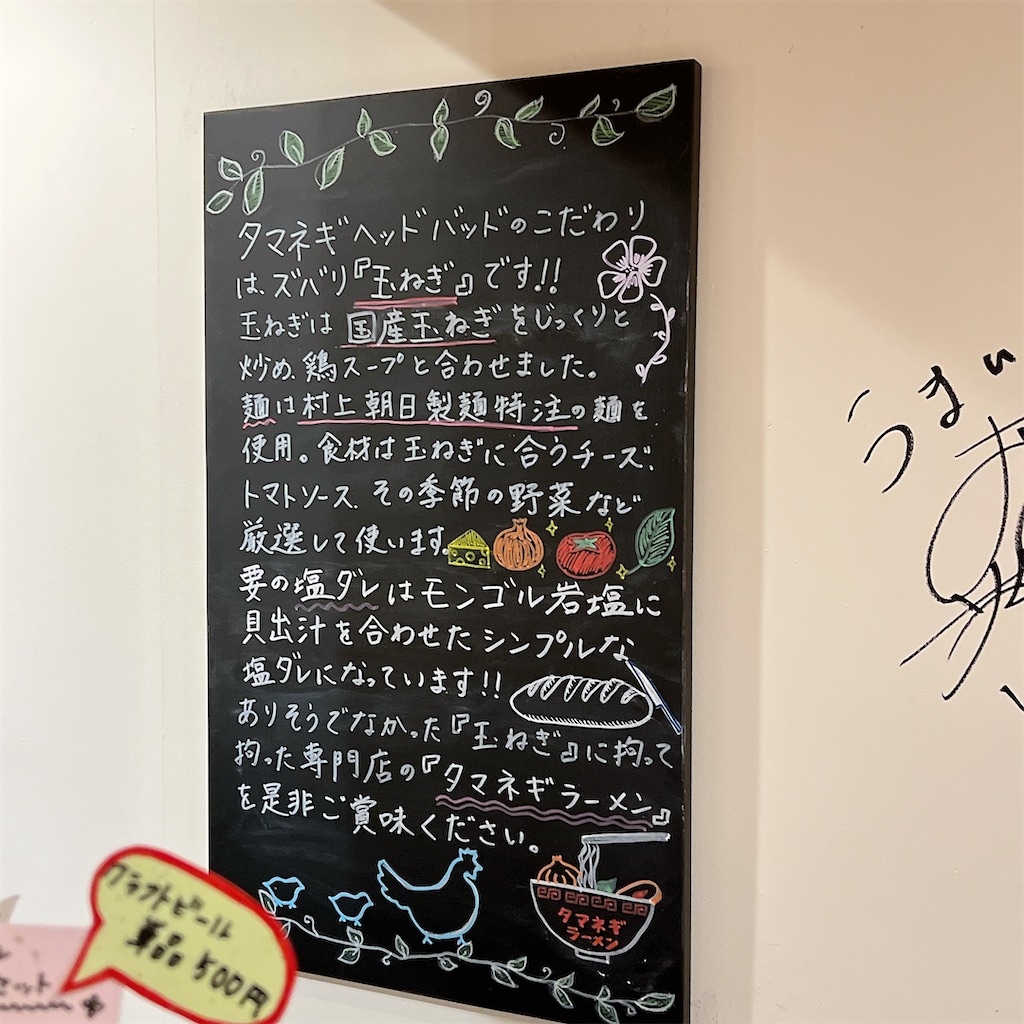 タマネギヘッドバッドのこだわり
は、ズバリ『玉ねぎ』です!!
玉ねぎは国産玉ねぎをじっくりと
炒め、鶏スープと合わせました。
麺は村上朝日製麺特注の麺を
使用。食材は玉ねぎに合うチーズ、
トマトソース、その季節の野菜など
厳選して使います。
要の塩ダレはモンゴル岩塩に
貝出汁を合わせたシンプルな
塩ダレになっています!!
ありそうでなかった『玉ねぎ』に拘って
拘った専門店の『タマネギラーメン』
を是非ご賞味ください。
タマネギ
ラーメン
クラフトビール
単品500円
セット
うまい